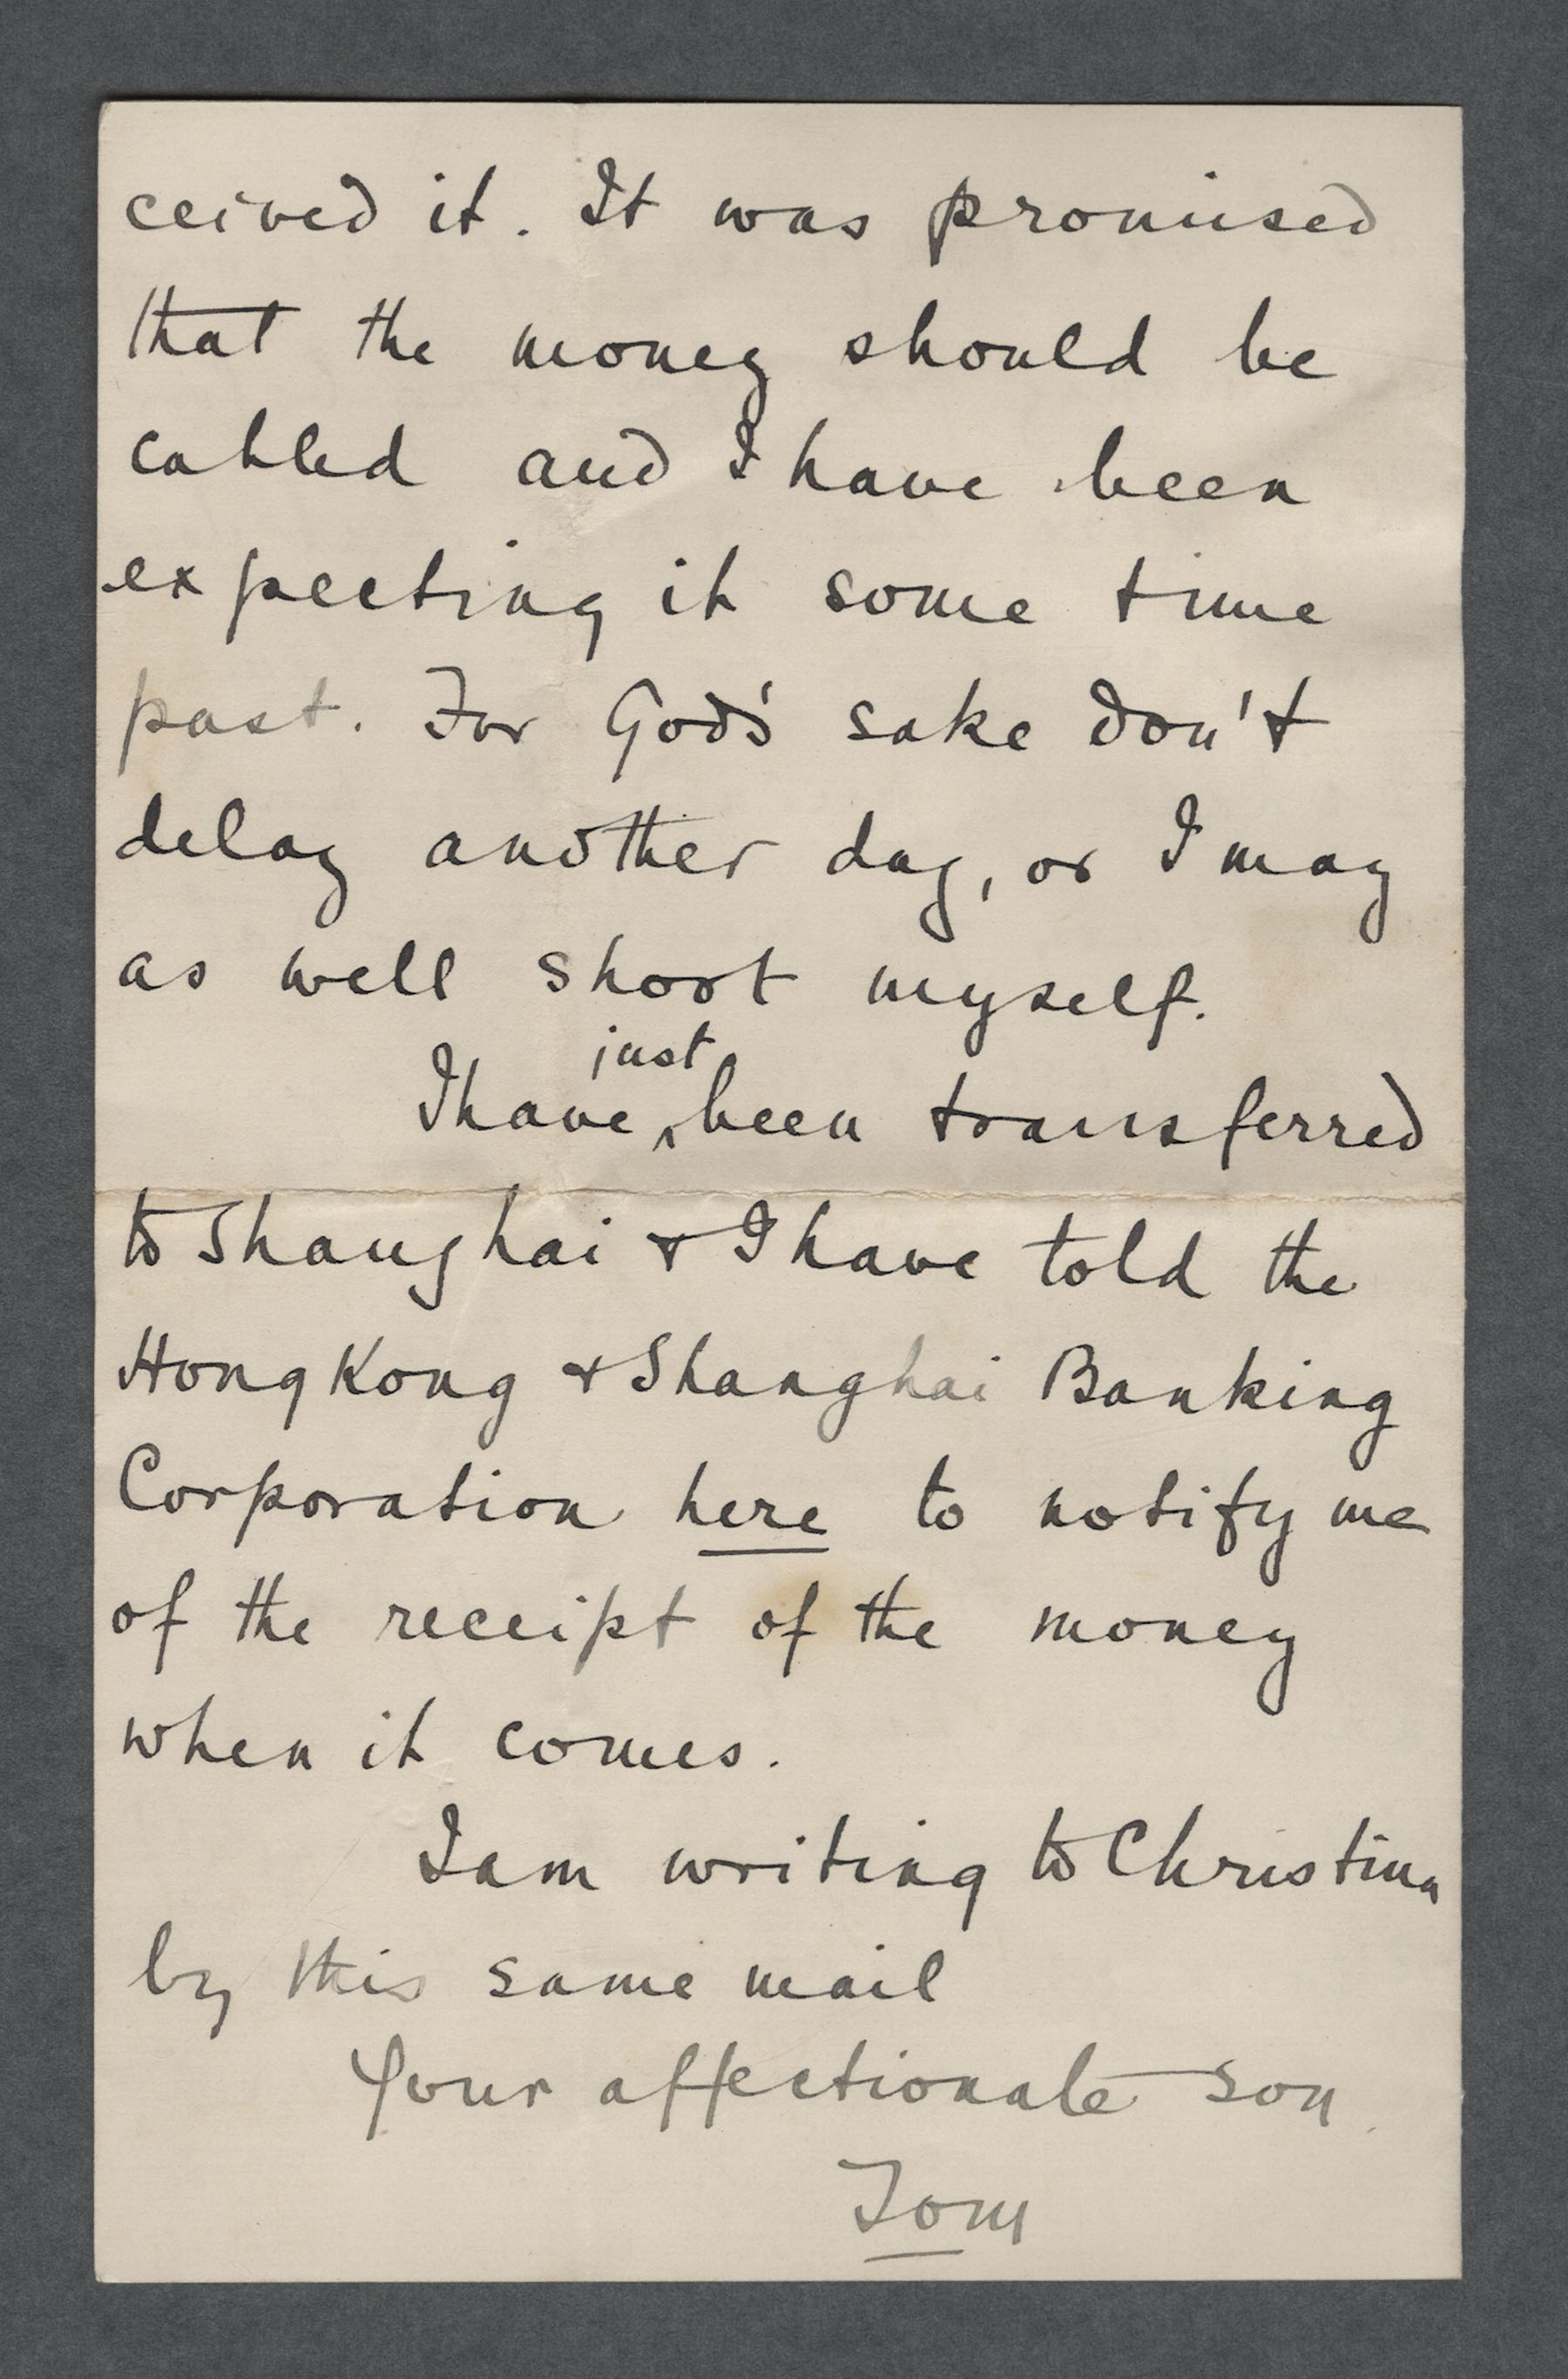 ceived it. It was promised
that the money should be
cabled and I have been
expecting it some time
past. For God's sake don't
delay another day, or I may
as well shoot myself.
just
I have ‸ been transferred
to Shanghai & I have told the
Hong Kong & Shanghai Banking
Corporation here to notify me
of the receipt of the money
when it comes.
I am writing to Christina
by this same mail
Your affectionate son
Tom